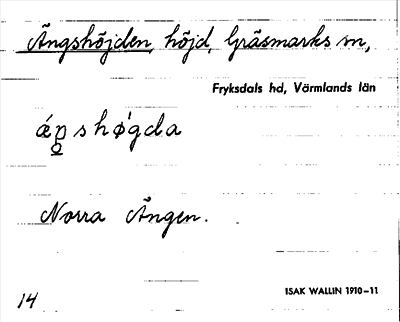 Ängshöjden, höjd, Gräsmarks sn,
Fryksdals hd, Värmlands län
Norra Ängen.
14 ISAK WALLIN 1910–11